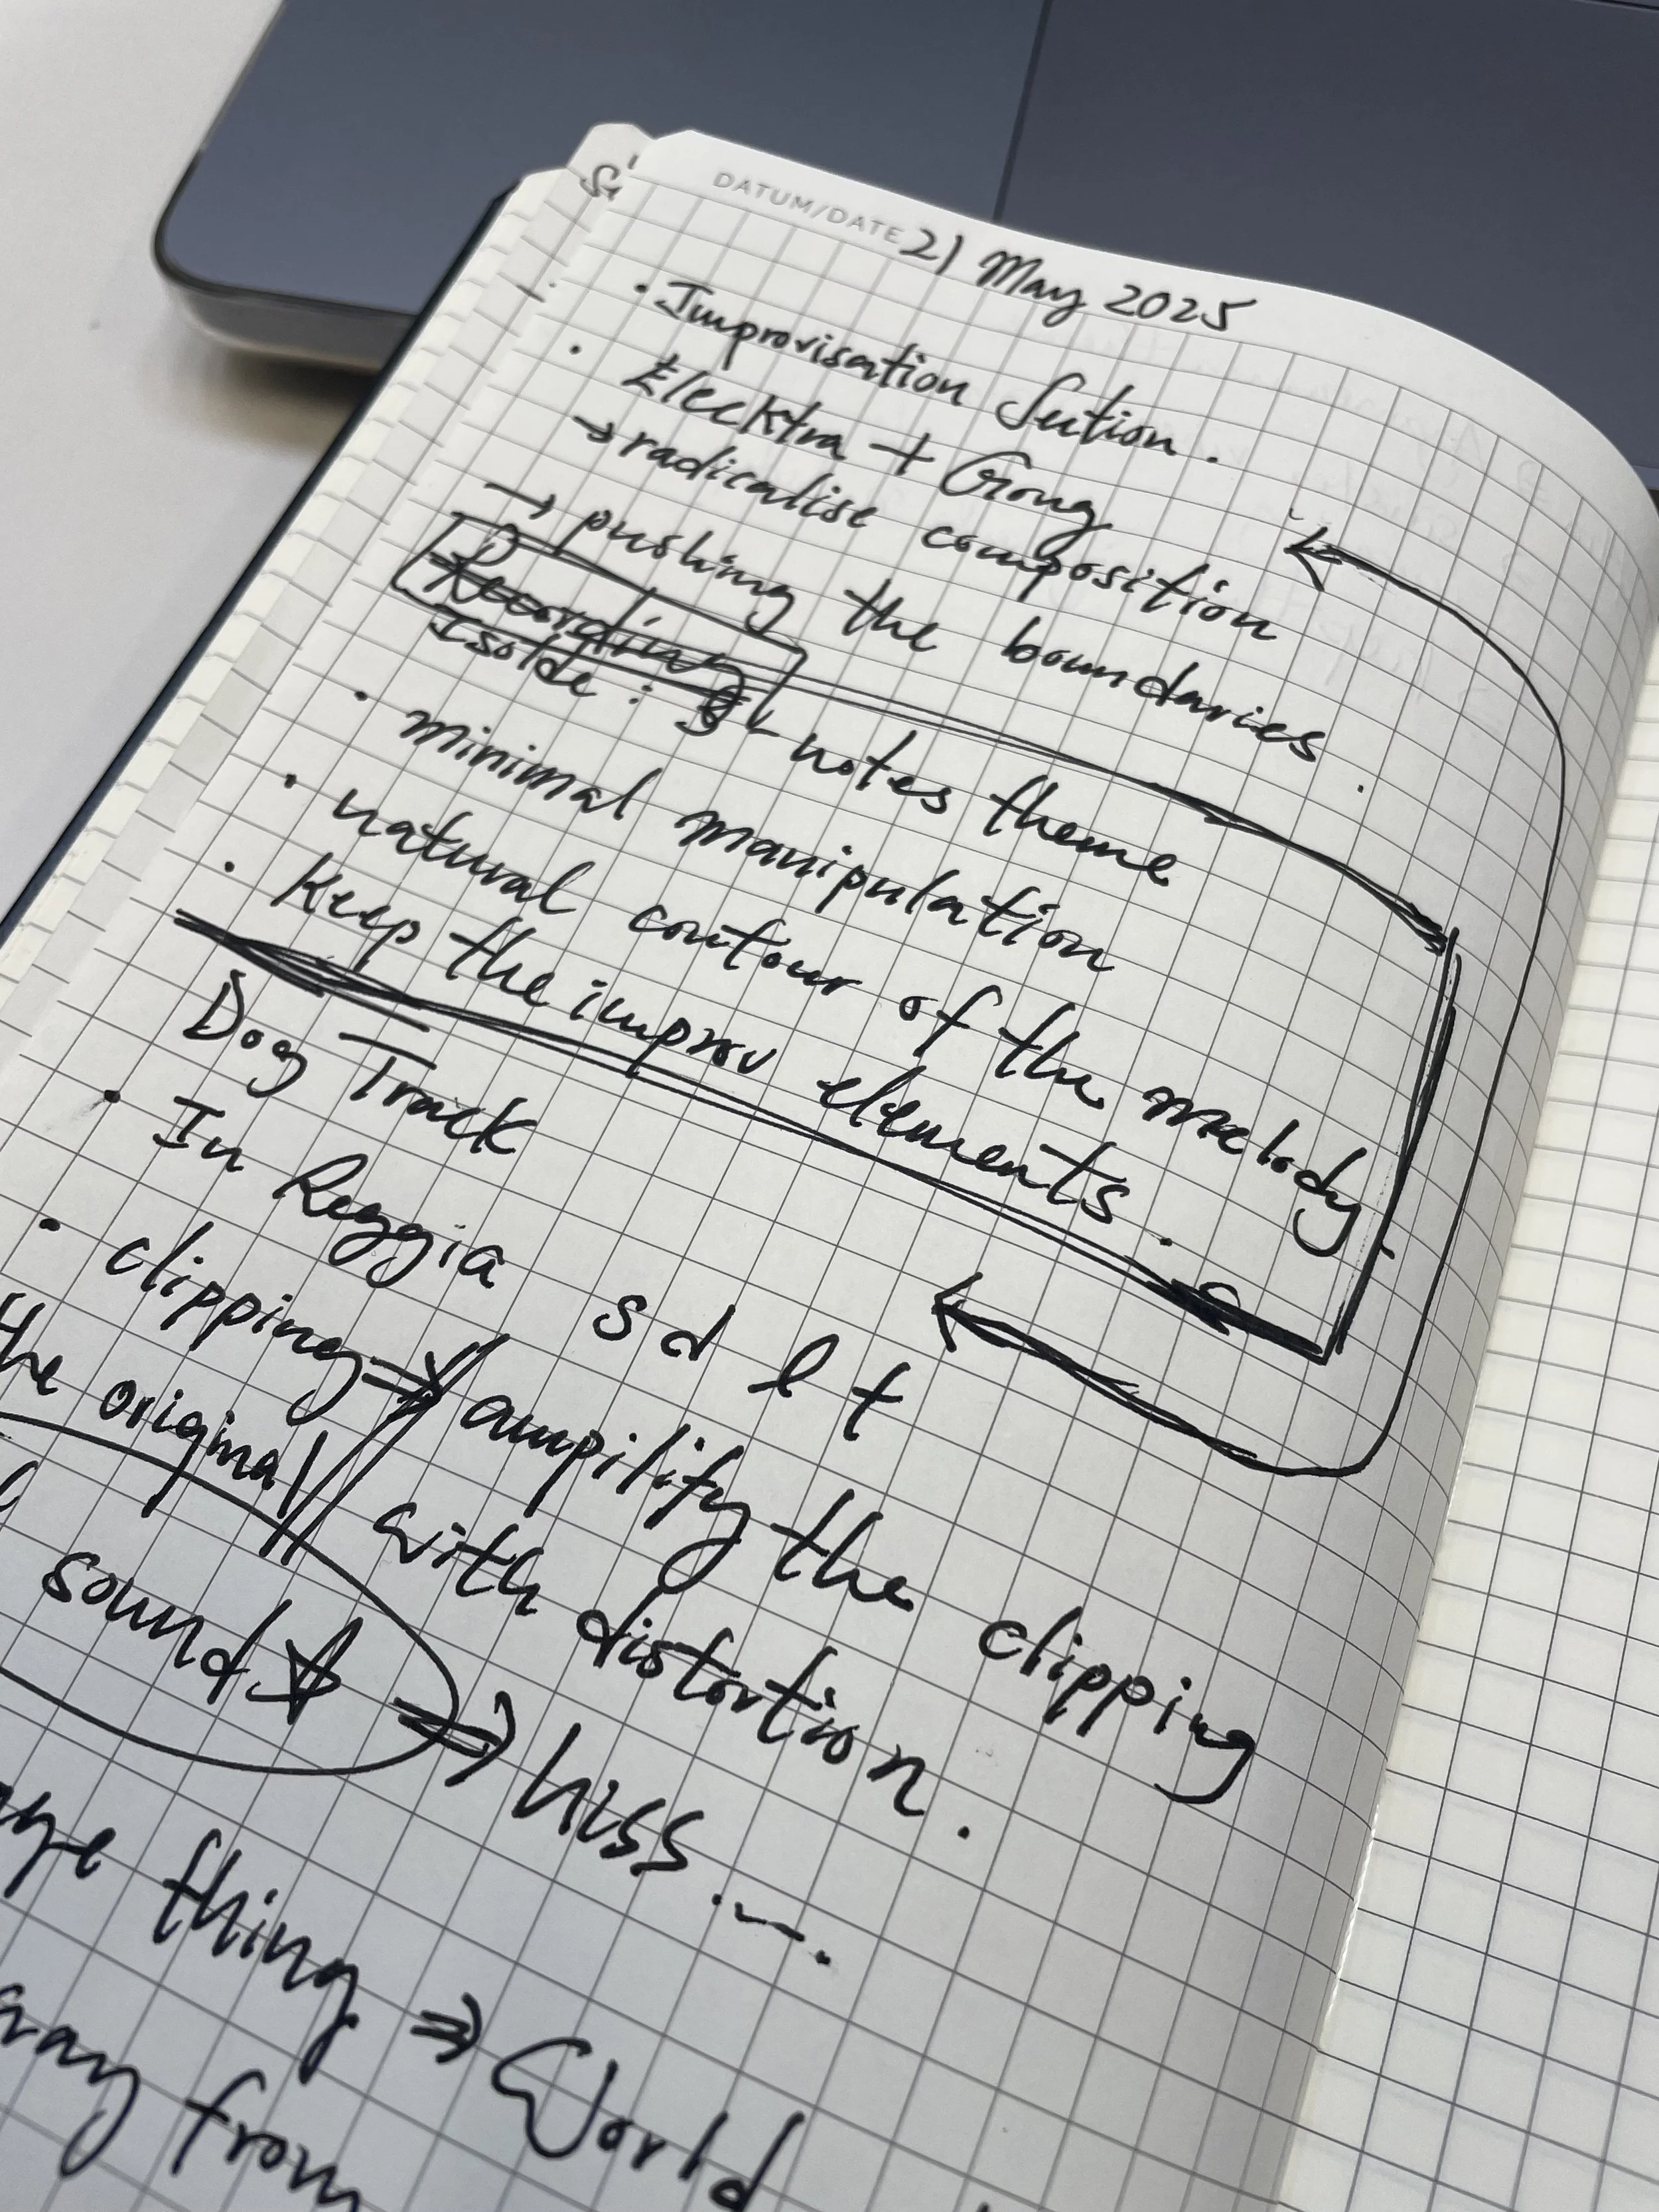 DATUM/DATE 21 May 2025
• Improvisation Section.
• Elecktra + Gong
→ radicalise composition
→ pushing the boundaries.
Recording
Isolde: notes theme
• minimal manipulation
• natural contour of the melody.
• Keep the improv elements.
Dog Track
• In Reggia
s d l t
• clipping → ampilify the clipping
the original with distortion.
sound → hiss ...
thing ⇒ World
from